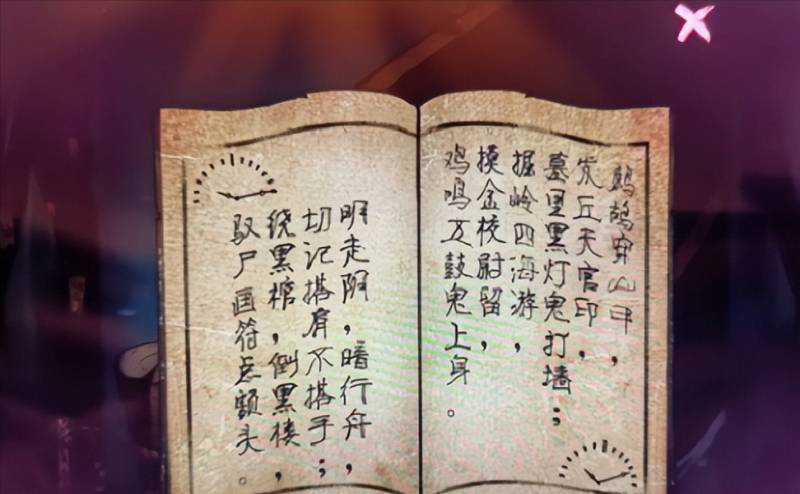 鹧鸪穿山甲，
发丘天官印，
墓里黑灯鬼打墙；
掘岭四海游，
摸金校尉留，
鸡鸣五鼓鬼上身。
明走阴，暗行舟，
切记搭肩不搭手；
绕黑棺，倒黑楼，
驭尸画符点额头。